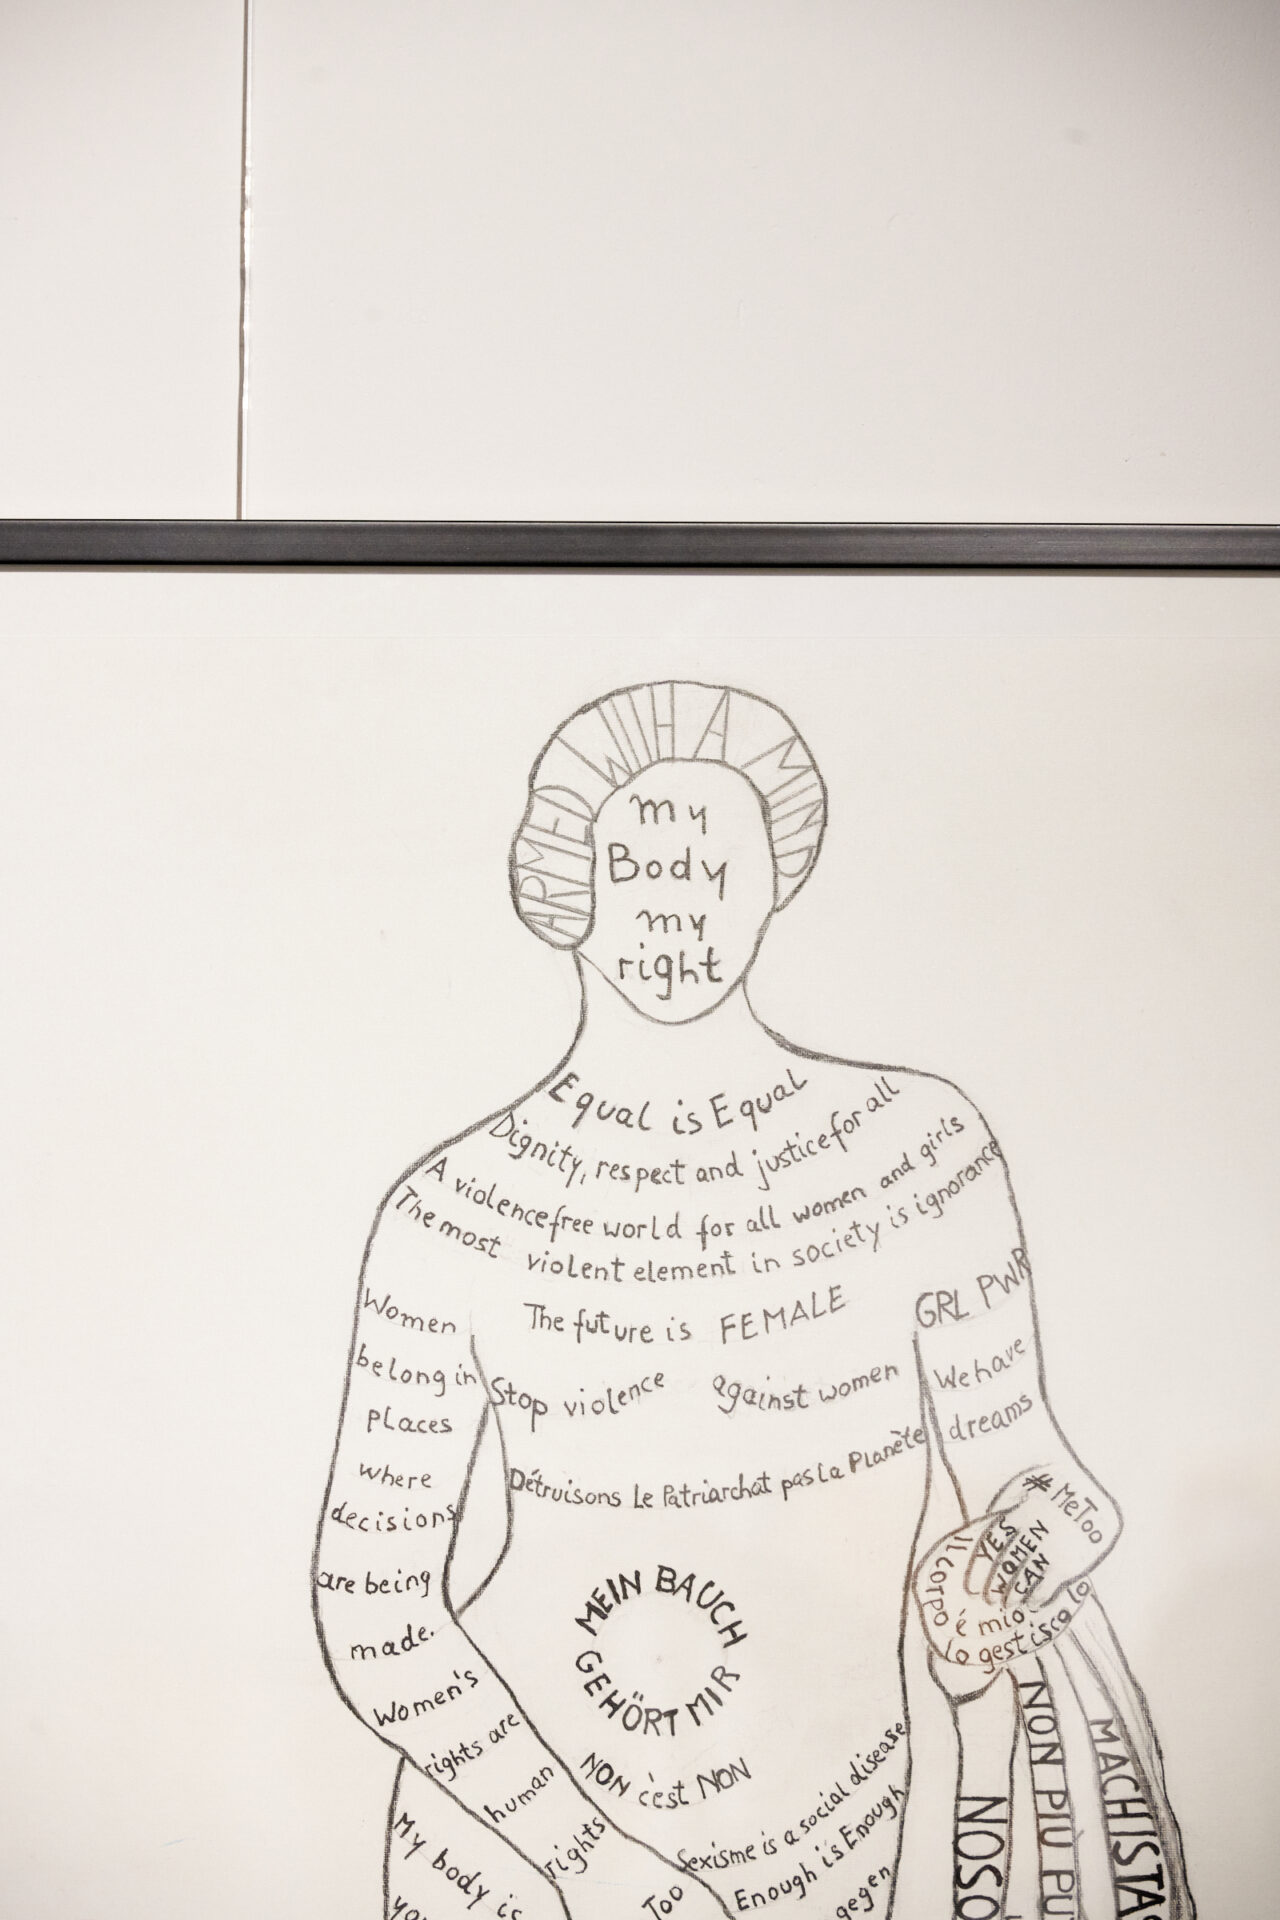 ARMED WITH A MIND
my
Body
my
right
Equal is Equal
Dignity, respect and justice for all
A violencefree world for all women and girls
The most violent element in society is ignorance
The future is FEMALE
Stop violence against women
Détruisons Le Patriarchat pas La Planète
MEIN BAUCH
GEHÖRT MIR
NON c'est NON
Sexisme is a social disease
Enough is Enough
gegen
Too
Women
belong in
places
where
decisions
are being
made.
Women's
rights are
human
rights
My body is
GRL PWR
We have
dreams
#MeToo
YES
WOMEN
CAN
Il corpo
é mio
lo gestisco io
NON PIÙ
MACHISTAS